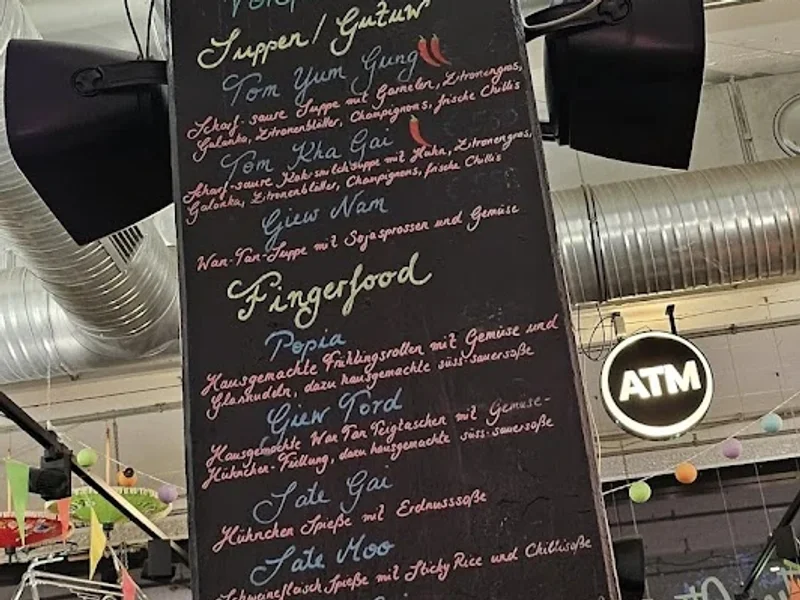 Suppen / Gużuw
Tom Yum Gung
Scharf-saure Suppe mit Garnelen, Zitronengras,
Galanka, Zitronenblätter, Champignons, frische Chillis
Tom Kha Gai
Scharf-saure Kokosmilchsuppe mit Huhn, Zitronengras,
Galanka, Zitronenblätter, Champignons, frische Chillis
Giew Nam
Wan-Tan-Suppe mit Sojasprossen und Gemüse
Fingerfood
Popia
Hausgemachte Frühlingsrollen mit Gemüse und
Glasnudeln, dazu hausgemachte süss-sauersoße
Giew Tord
Hausgemachte Wan Tan Teigtaschen mit Gemüse-
Hühnchen-Füllung, dazu hausgemachte süss-sauersoße
Sate Gai
Hühnchen Spieße mit Erdnusssoße
Sate Moo
Schweinefleisch Spieße mit Sticky Rice und Chillisoße
ATM